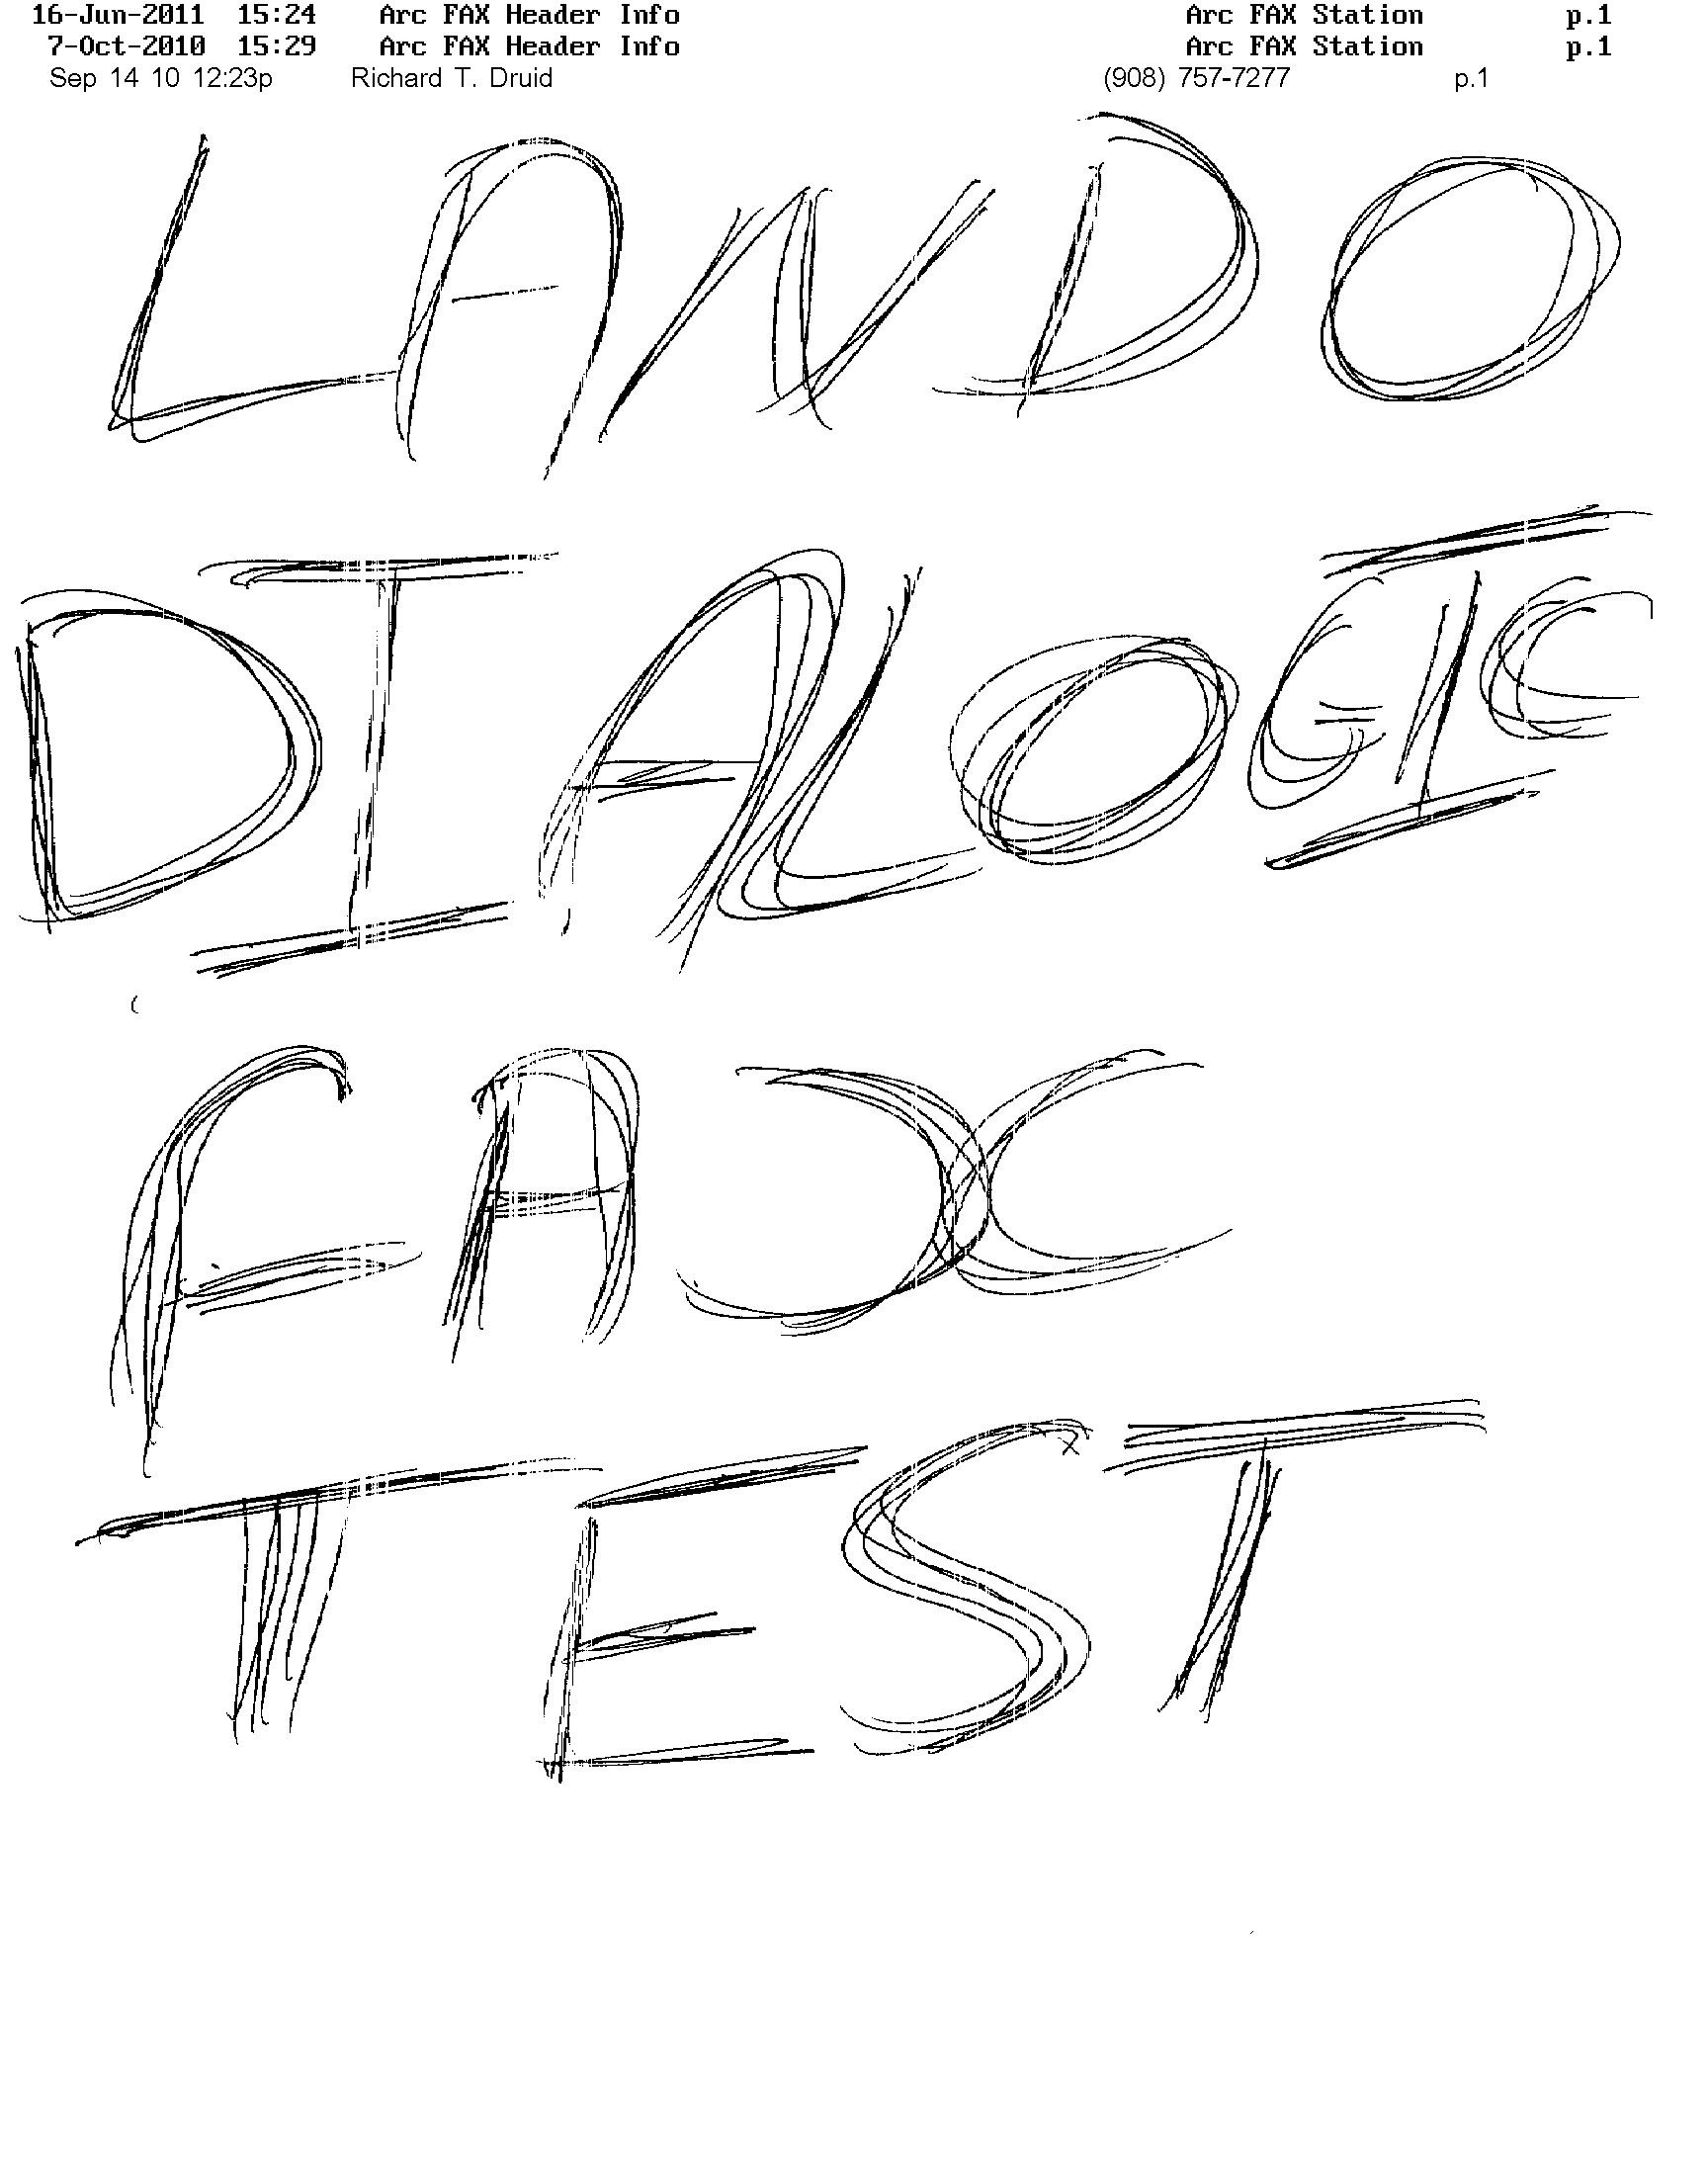 16-Jun-2011 15:24 Arc FAX Header Info Arc FAX Station p.1
7-Oct-2010 15:29 Arc FAX Header Info Arc FAX Station p.1
Sep 14 10 12:23p Richard T. Druid (908) 757-7277 p.1
LANDO
DIALOGIC
FAX
TEST